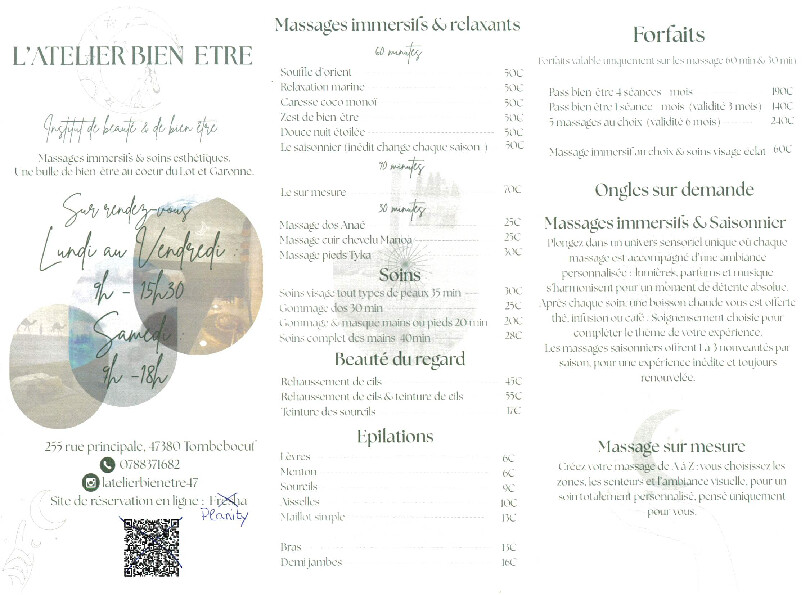 L'ATELIER BIEN ETRE
Institut de beauté & de bien être
Massages immersifs & soins esthétiques.
Une bulle de bien être au coeur du Lot et Garonne.
Sur rendez-vous
Lundi au Vendredi :
9h - 15h30
Samedi :
9h -18h
255 rue principale, 47380 Tombeboeuf
0788371682
latelierbienetre47
Site de réservation en ligne : Fresha
Planity
Massages immersifs & relaxants
60 minutes
Souffle d'orient 50€
Relaxation marine 50€
Caresse coco monoï 50€
Zest de bien être 50€
Douce nuit étoilée 50€
Le saisonnier (inédit change chaque saison !) 50€
70 minutes
Le sur mesure 70€
30 minutes
Massage dos Anaé 25€
Massage cuir chevelu Manoa 25€
Massage pieds Tyka 30€
Soins
Soins visage tout types de peaux 35 min 30€
Gommage dos 30 min 25€
Gommage & masque mains ou pieds 20 min 20€
Soins complet des mains 40min 28€
Beauté du regard
Rehaussement de cils 45€
Rehaussement de cils & teinture de cils 55€
Teinture des sourcils 17€
Epilations
Lèvres 6€
Menton 6€
Sourcils 9€
Aisselles 10€
Maillot simple 13€
Bras 13€
Demi jambes 16€
Forfaits
Forfaits valable uniquement sur les massage 60 min & 30 min
Pass bien être 4 séances - mois 190€
Pass bien être 1 séance - mois (validité 3 mois) 140€
5 massages au choix (validité 6 mois) 240€
Massage immersif au choix & soins visage éclat 60€
Ongles sur demande
Massages immersifs & Saisonnier
Plongez dans un univers sensoriel unique où chaque
massage est accompagné d'une ambiance
personnalisée : lumières, parfums et musique
s'harmonisent pour un moment de détente absolue.
Après chaque soin, une boisson chaude vous est offerte
thé, infusion ou café . Soigneusement choisie pour
compléter le thème de votre expérience.
Les massages saisonniers offrent 1 à 3 nouveautés par
saison, pour une expérience inédite et toujours
renouvelée.
Massage sur mesure
Créez votre massage de A à Z : vous choisissez les
zones, les senteurs et l'ambiance visuelle, pour un
soin totalement personnalisé, pensé uniquement
pour vous.